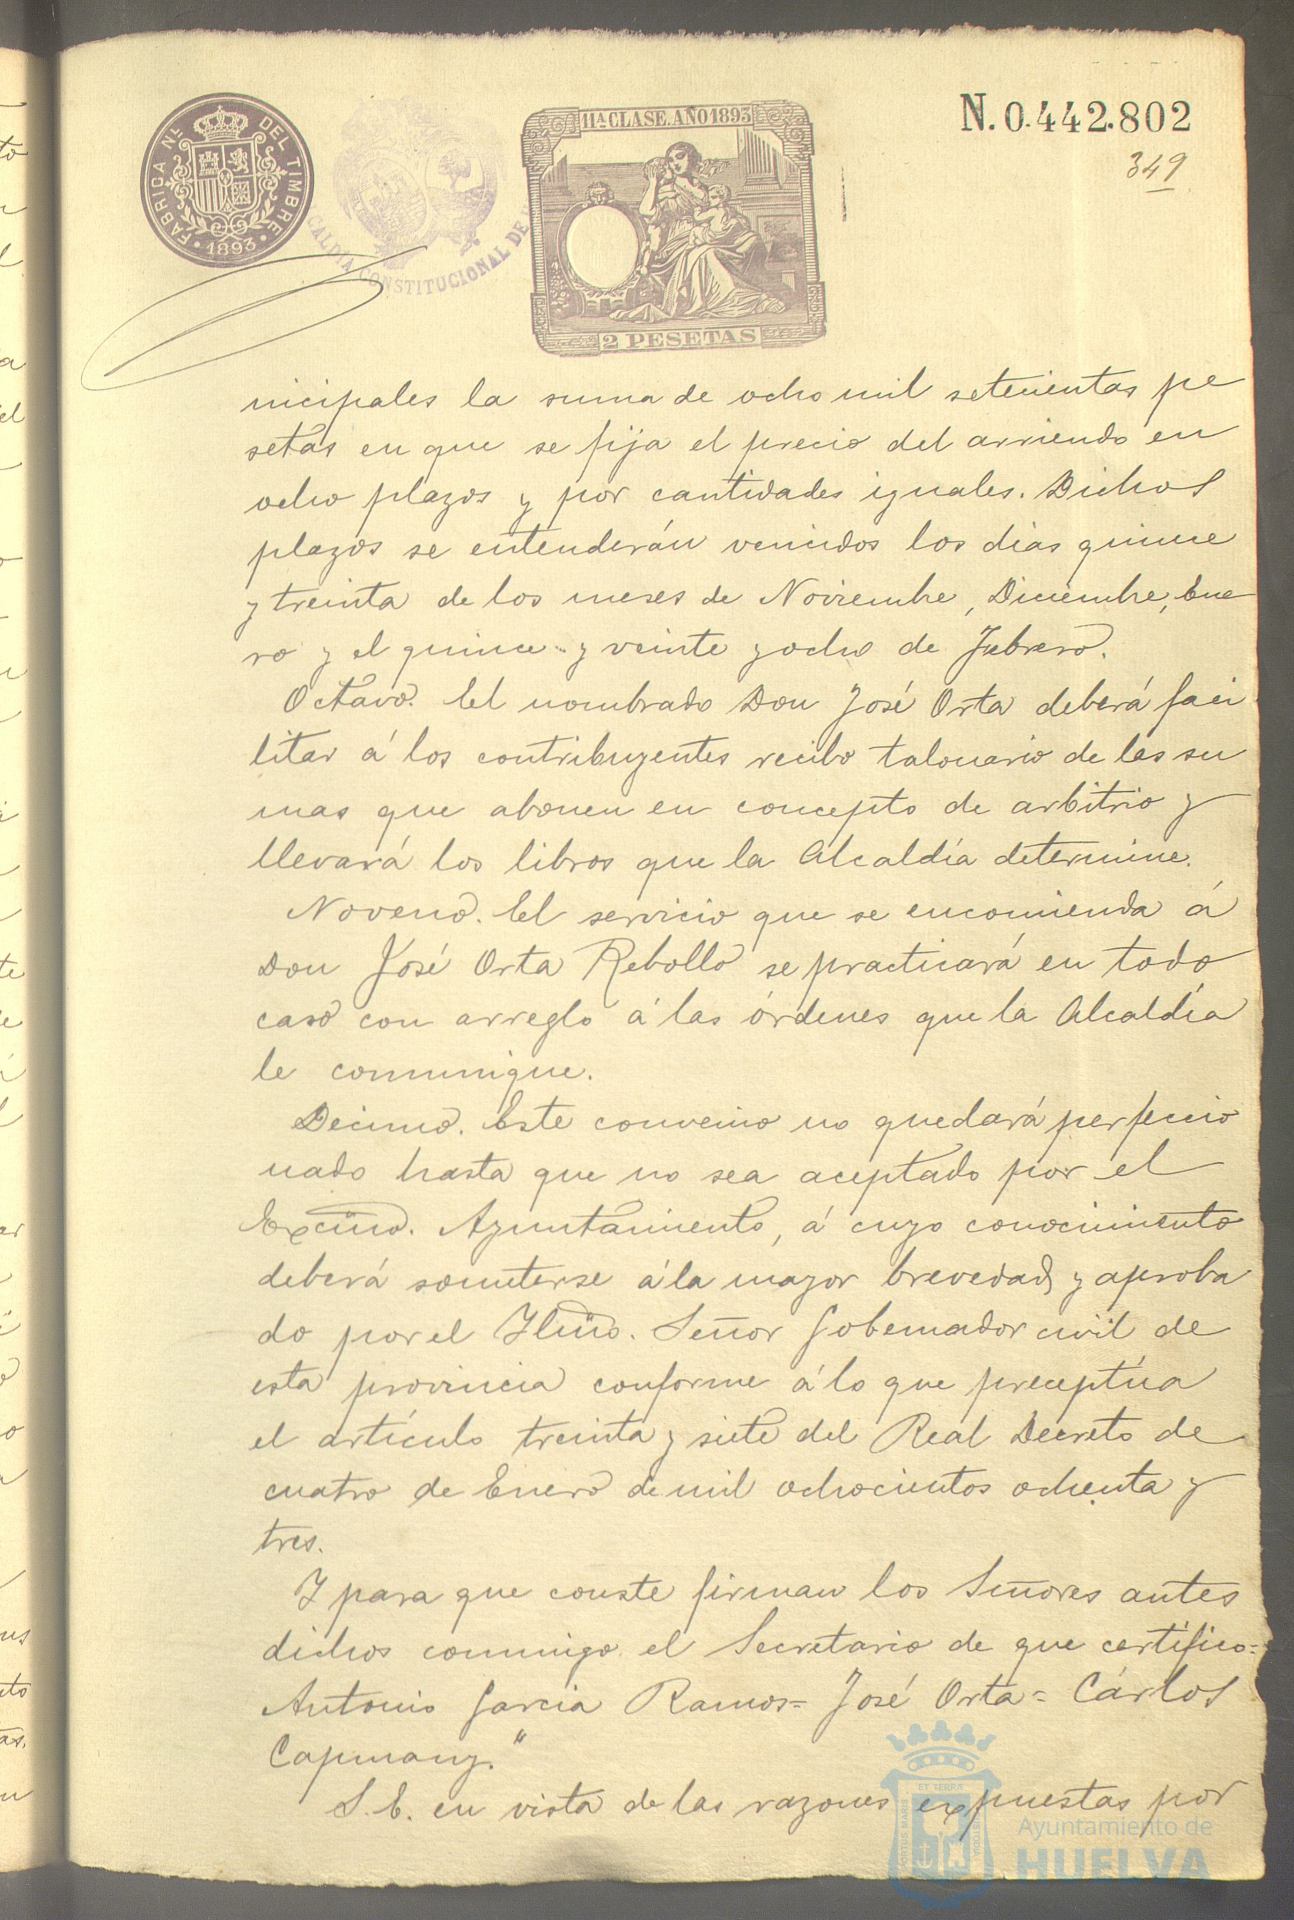 FÁBRICA NL. DEL TIMBRE
1893
CALDÍA CONSTITUCIONAL DE
11ª CLASE. AÑO 1893
2 PESETAS
N. 0.442.802
349
nicipales la suma de ocho mil setecientas pe
setas en que se fija el precio del arriendo en
ocho plazos y por cantidades iguales. Dichos
plazos se entenderán vencidos los dias quince
y treinta de los meses de Noviembre, Diciembre, Ene
ro y el quince y veinte y ocho de Febrero.
Octavo. El nombrado Don José Orta deberá faci
litar á los contribuyentes recibo talonario de las su
mas que abonen en concepto de arbitrio y
llevará los libros que la Alcaldía determine.
Noveno. El servicio que se encomienda á
Don José Orta Rebollo se practicará en todo
caso con arreglo á las órdenes que la Alcaldía
le comunique.
Decimo. Este convenio no quedará perfeccio
nado hasta que no sea aceptado por el
Excmo. Ayuntamiento, á cuyo conocimiento
deberá someterse á la mayor brevedad y aproba
do por el Ilmo. Señor Gobernador civil de
esta provincia conforme á lo que preceptúa
el artículo treinta y siete del Real Decreto de
cuatro de Enero de mil ochocientos ochenta y
tres.
Y para que conste firman los Señores antes
dichos conmigo el Secretario de que certifico=
Antonio Garcia Ramos= José Orta= Cárlos
Capmany."
S. E. en vista de las razones expuestas por
PORTUS MARIS ET TERRÆ CUSTODIA
Ayuntamiento de
HUELVA